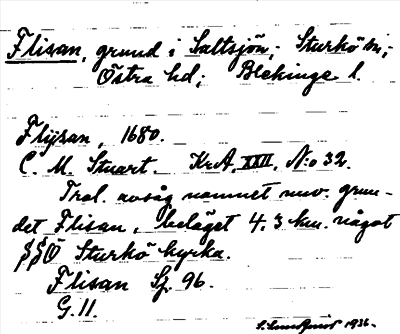 Flisan, grund i Saltsjön; Sturkö sn;
Östra hd; Blekinge l.
Flÿsan, 1680.
C. M. Stuart. KrA, XXII, N:o 32.
Trol. avsåg namnet nuv. grun-
det Flisan, beläget 4,3 km. något
SSÖ Sturkö kyrka.
Flisan Sj. 96.
G. 11.
1936.